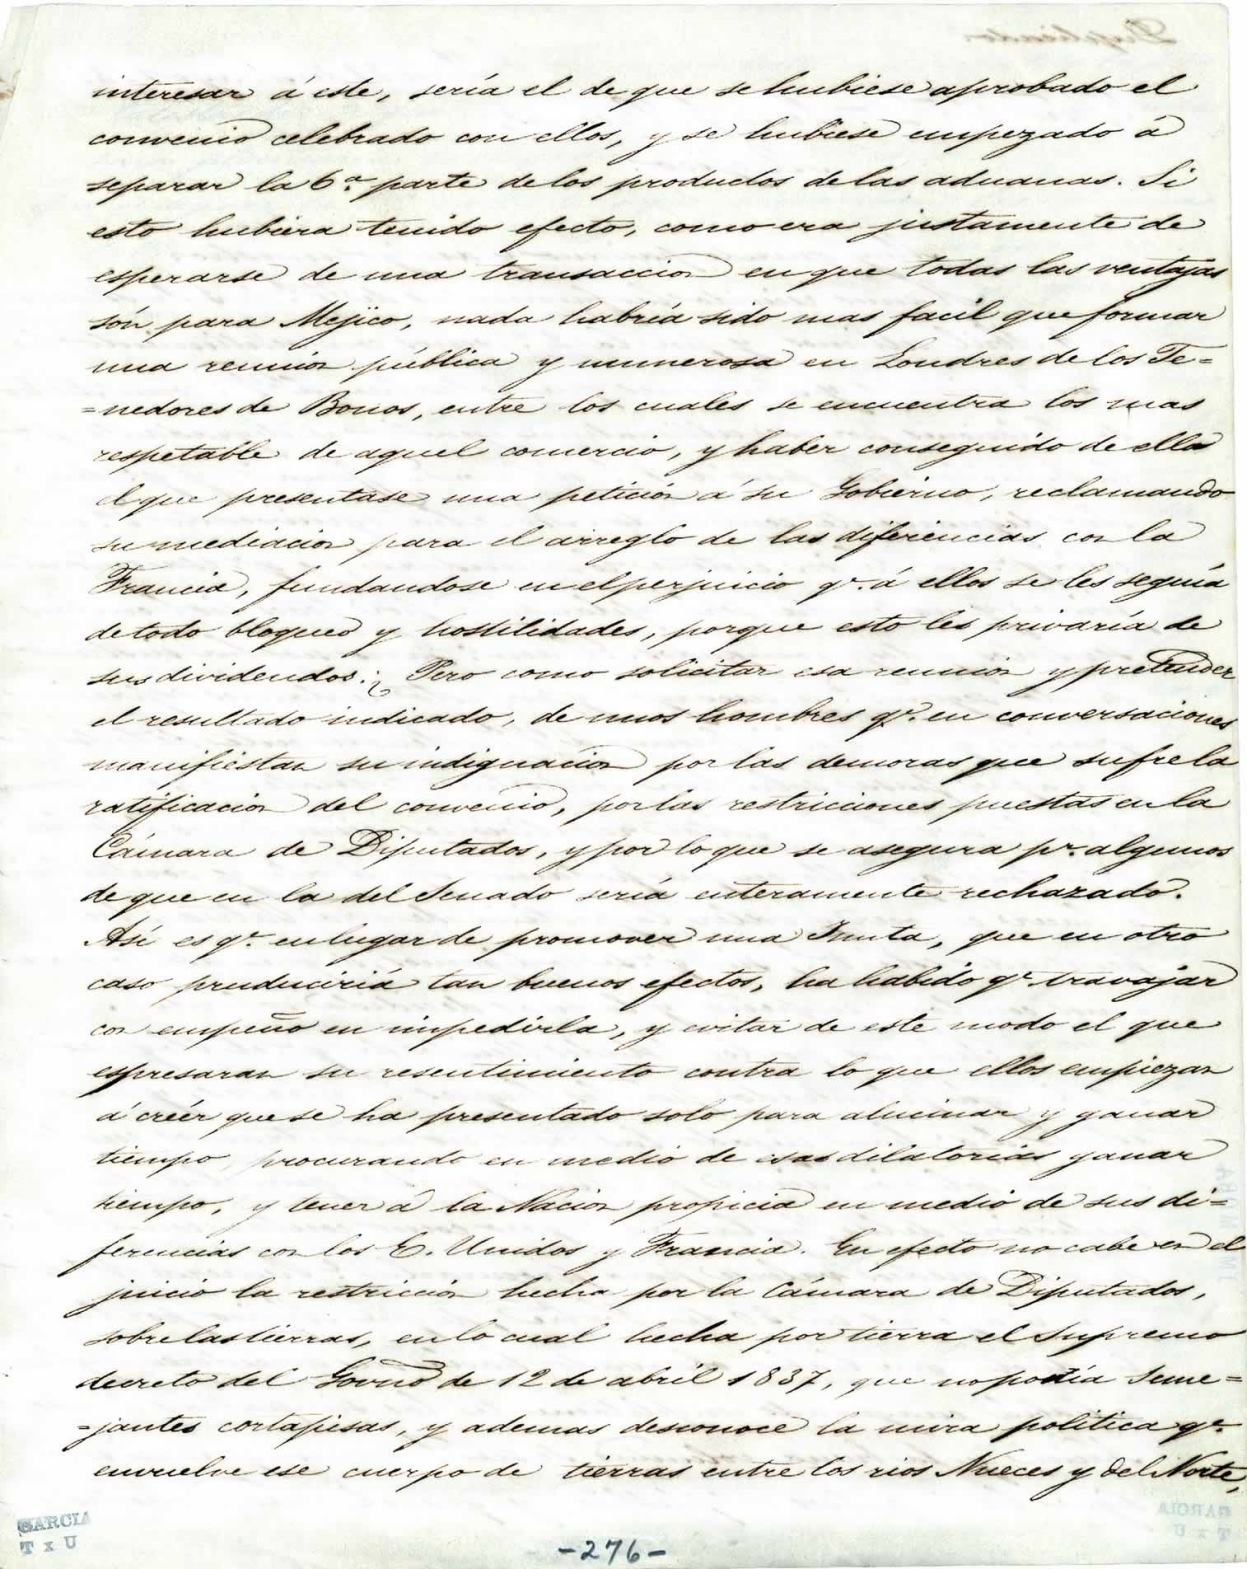 interesar á este, sería el de que se hubiese aprobado el
convenio celebrado con ellos, y se hubiese empezado á
separar la 6.ª parte de los productos de las aduanas. Si
esto hubiera tenido efecto, como era justamente de
esperarse de una transaccion en que todas las ventajas
són para Mejico, nada habría sido mas facil que formar
una reunion pública y numerosa en Londres de los Te=
=nedores de Bonos, entre los cuales se encuentra los mas
respetable de aquel comercio, y haber conseguido de ella
el que presentase una petición á su Gobierno, reclamando
su mediacion para el arreglo de las diferiencias con la
Francia, fundandose en el perjuicio q.e á ellos se les seguía
de todo bloqueo y hostilidades, porque esto les privaría de
sus dividendos. ¿Pero como solicitar esa reunion y pretender
el resultado indicado, de unos hombres q.e en conversaciones
manifiestan su indignacion por las demoras que sufre la
ratificacion del convenio, por las restricciones puestas en la
Cámara de Diputados, y por lo que se asegura p.r algunos
de que en la del Senado sería enteramente rechazado.
Asi es q.e en lugar de promover una Junta, que en otro
caso pruduciriá tan buenos efectos, ha habido q.e travajar
con empeño en impedirla, y evitar de este modo el que
espresaran su resentimiento contra lo que ellos empiezan
á créer que se ha presentado solo para alucinar y ganar
tiempo, procurando en medio de esas dilatorias ganar
tiempo, y tener á la Nacion propicia en medio de sus di=
ferencias con los E. Unidos y Francia. En efecto no cabe en el
juicio la restricción hecha por la Cámara de Diputados,
sobre las tierras, en lo cual hecha por tierra el Supremo
decreto del Govno de 12 de abril 1837, que no ponía Seme=
=jantes cortapisas, y ademas desconoce la mira politica q.e
envuelve ese cuerpo de tierras entre los rios Nueces y del Norte,
GARCIA
T x U
-276-